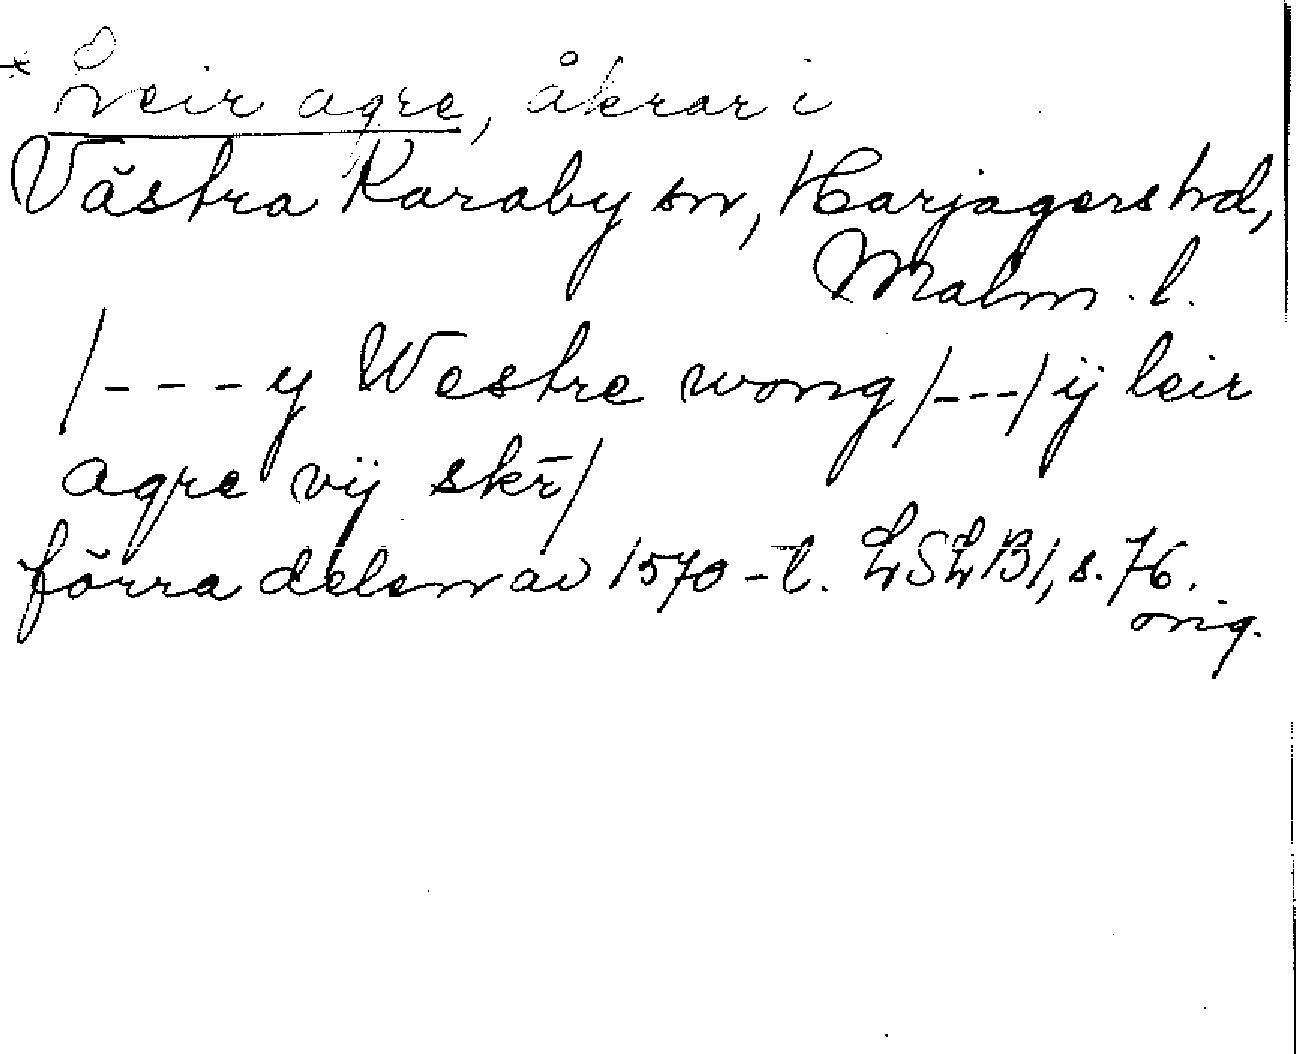 * Leir agre, åkrar i
Västra Karaby sn, Harjagers hd,
Malm. l.
/---y Westre wong/---/ij leir
agre vij skr̄/
förra delen av 1570-t. LSLB1, s. 76.
orig.